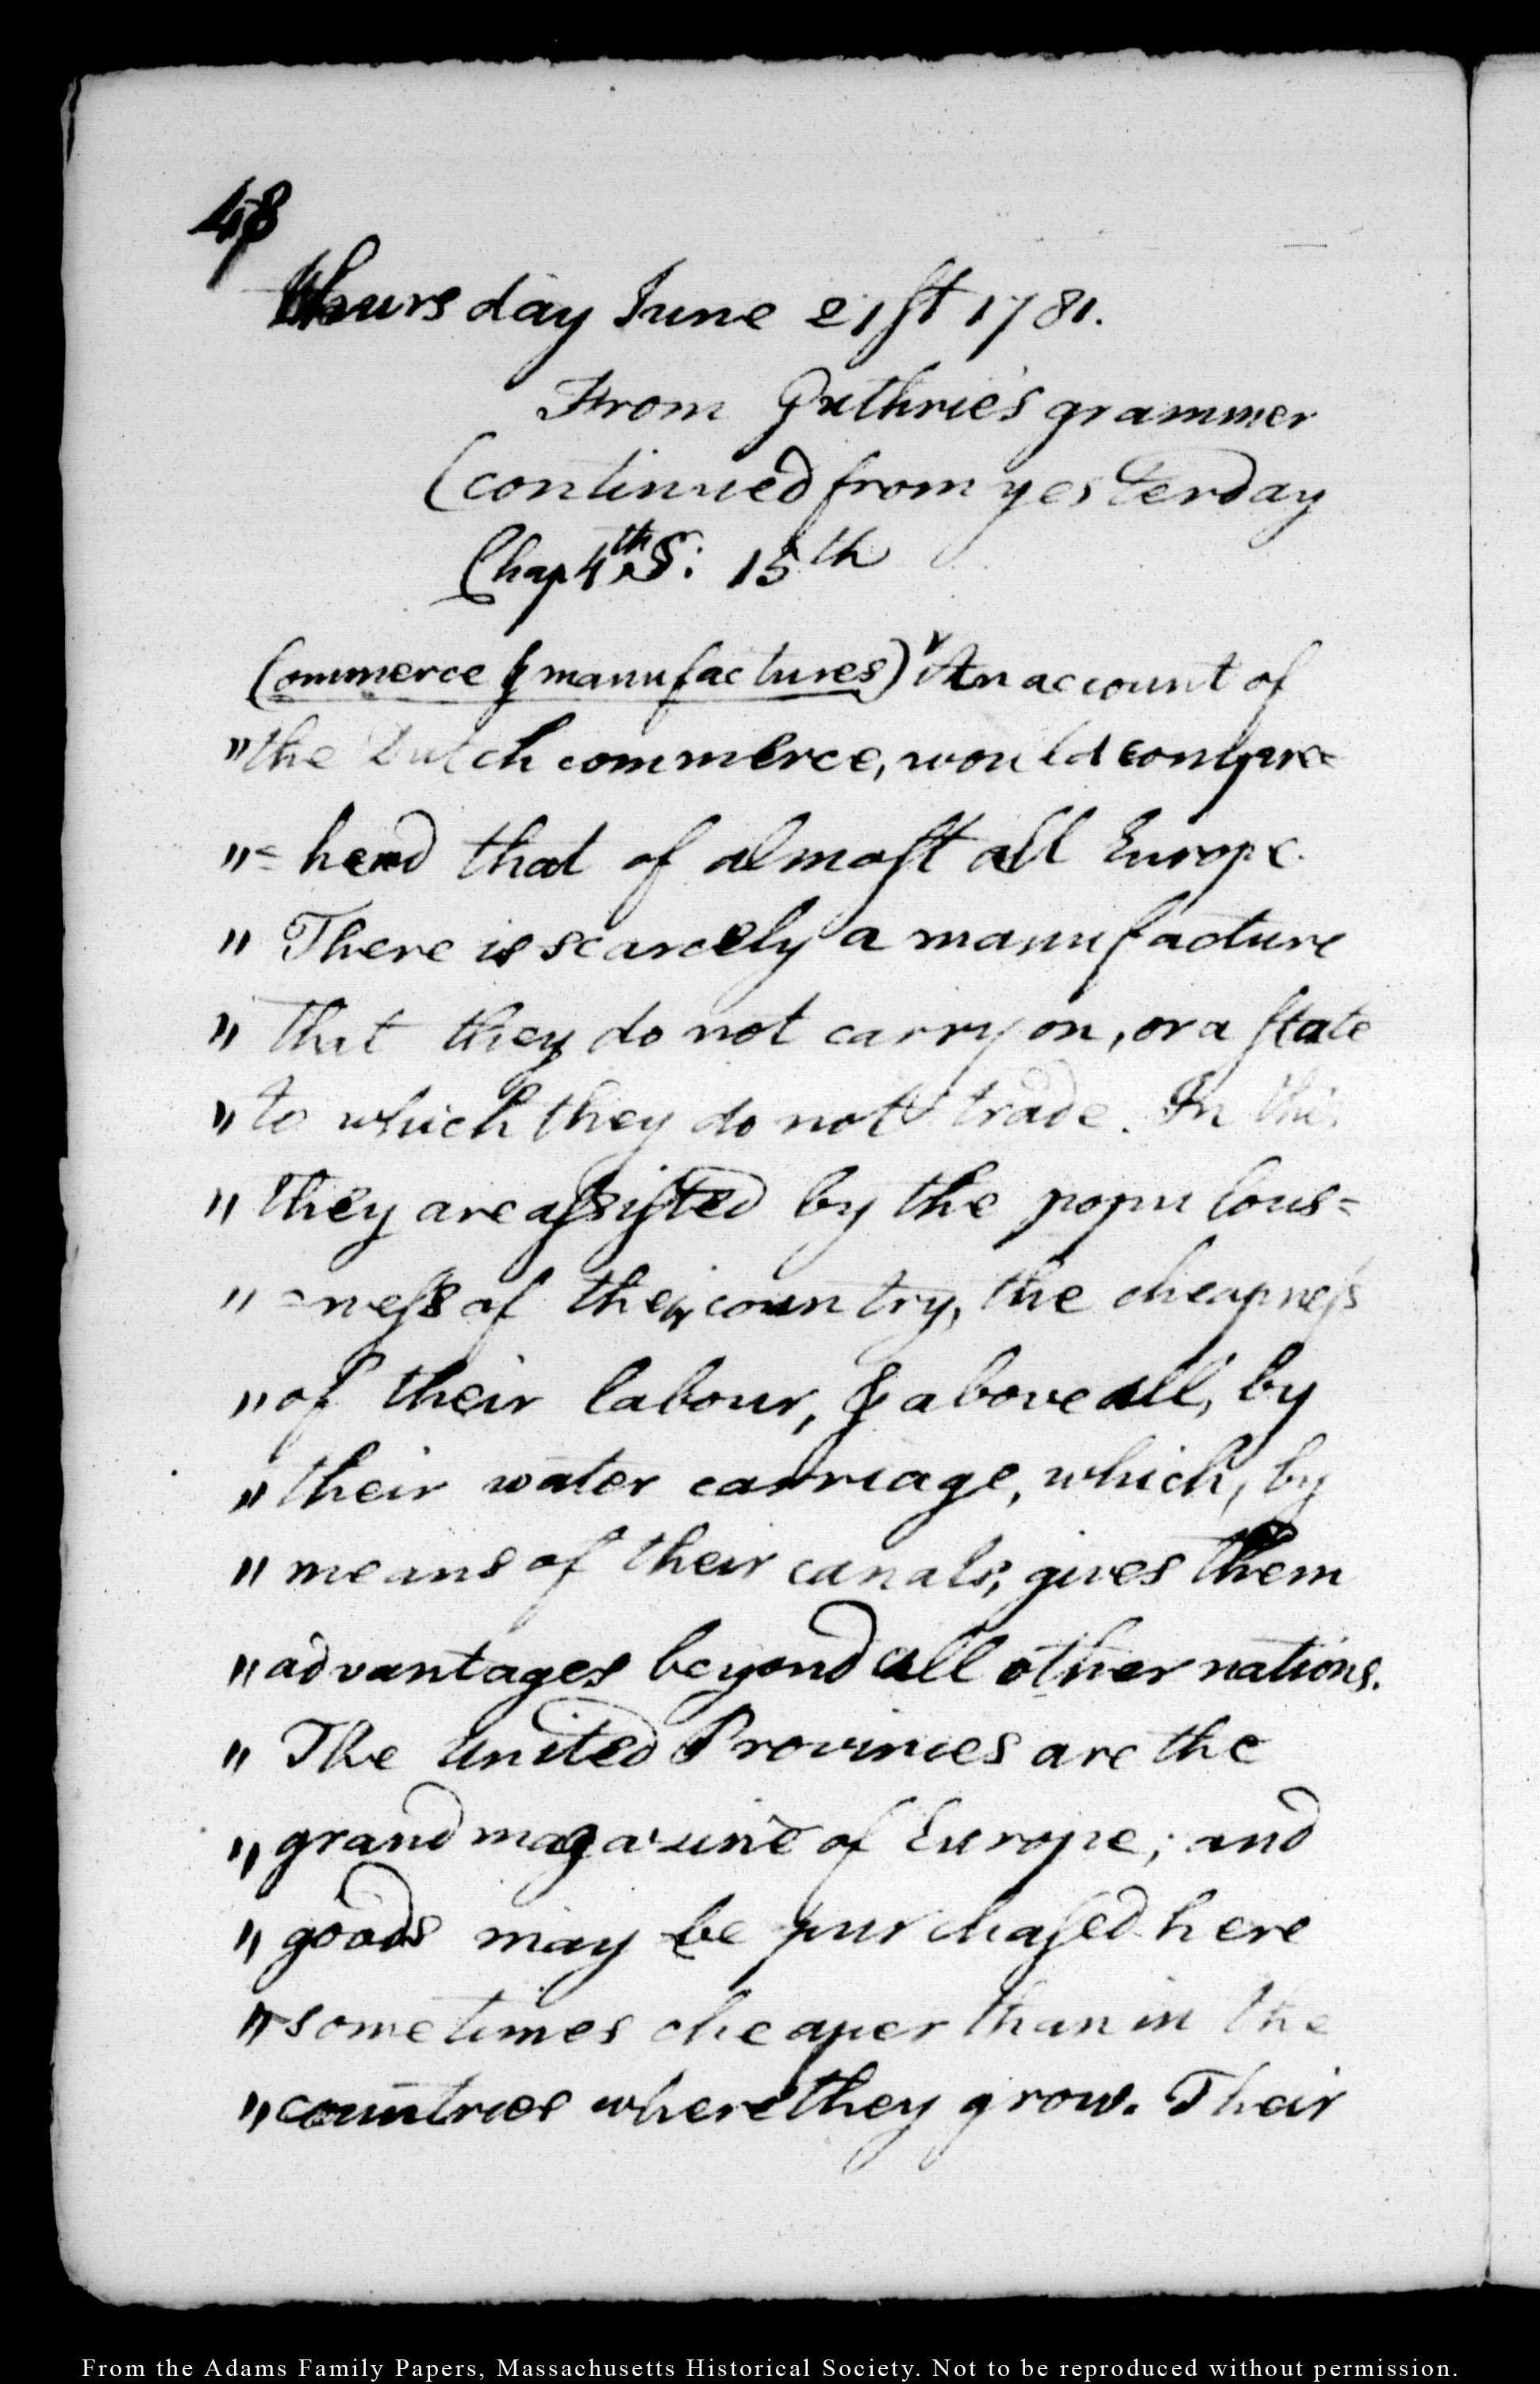 48
Thursday June 21st 1781.
From Guthrie's grammer
(continued from yesterday
Chap 4th S: 15th
(Commerce & manufactures) " An account of
" the Dutch commerce, would compre=
" = hend that of almost all Europe.
" There is scarcely a manufacture
" that they do not carry on, or a state
" to which they do not trade. In this
" they are assisted by the populous=
" = ness of their country, the cheapness
" of their labour, & above all, by
" their water carriage, which, by
" means of their canals, gives them
" advantages beyond all other nations.
" The United Provinces are the
" grand magazine of Europe; and
" goods may be purchased here
" sometimes cheaper than in the
" countries where they grow. Their
From the Adams Family Papers, Massachusetts Historical Society. Not to be reproduced without permission.